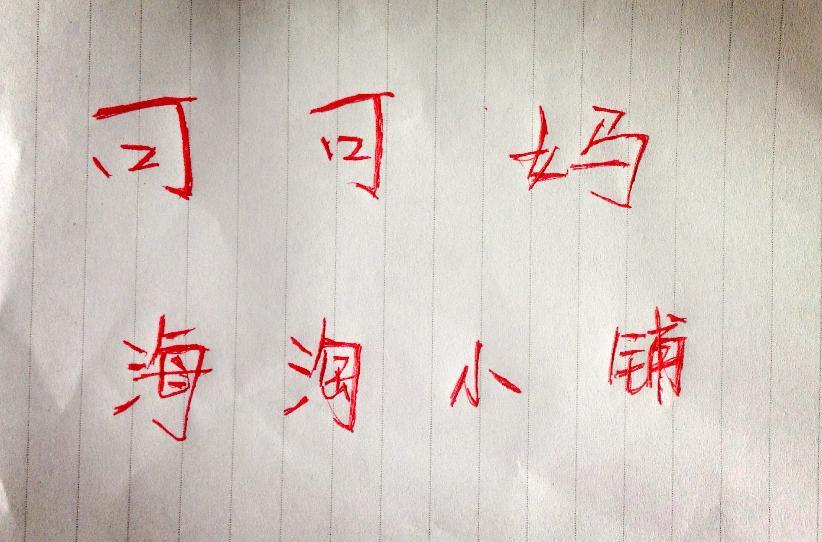 可可妈
海淘小铺